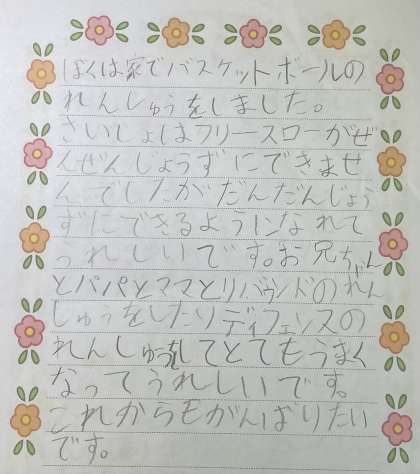 ぼくは家でバスケットボールの
れんしゅうをしました。
さいしょはフリースローがぜ
んぜんじょうずにできませ
んでしたがだんだんじょう
ずにできるようになれて
うれしいです。お兄ちゃん
とパパとママとリバウンドのれん
しゅうをしたりディフェンスの
れんしゅうをしてとてもうまく
なってうれしいです。
これからもがんばりたい
です。